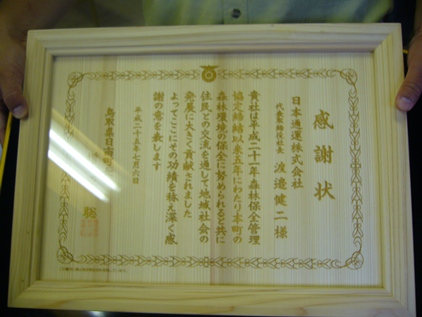 感謝状
日本通運株式会社
代表取締役社長 渡邉健二様
貴社は平成二十一年森林保全管理
協定締結以来五年にわたり本町の
森林環境の保全に努められると共に
住民との交流を通して地域社会の
発展に大きく貢献されました
よってここにその功績を称え深く感
謝の意を表します
平成二十五年七月六日
鳥取県日南町長
聡